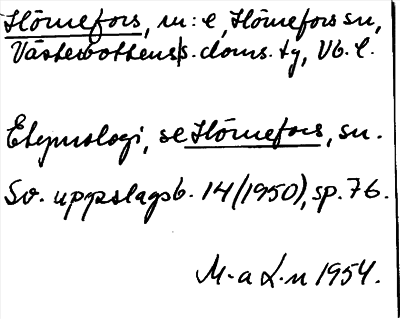 Hörnefors, m:e, Hörnefors sn,
Västerbottens s. doms. tg, Vb. l.
Etymologi, se Hörnefors, sn.
Sv. uppslagsb. 14 (1950), sp. 76.
M-a L-n 1954.